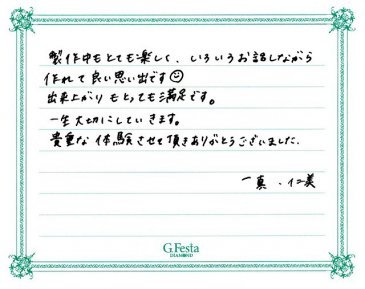 製作中もとても楽しく、いろいろお話しながら
作れて良い思い出です☺
出来上がりもとっても満足です。
一生大切にしていきます。
貴重な体験させて頂きありがとうございました。
一真・仁美
G.Festa
DIAMOND